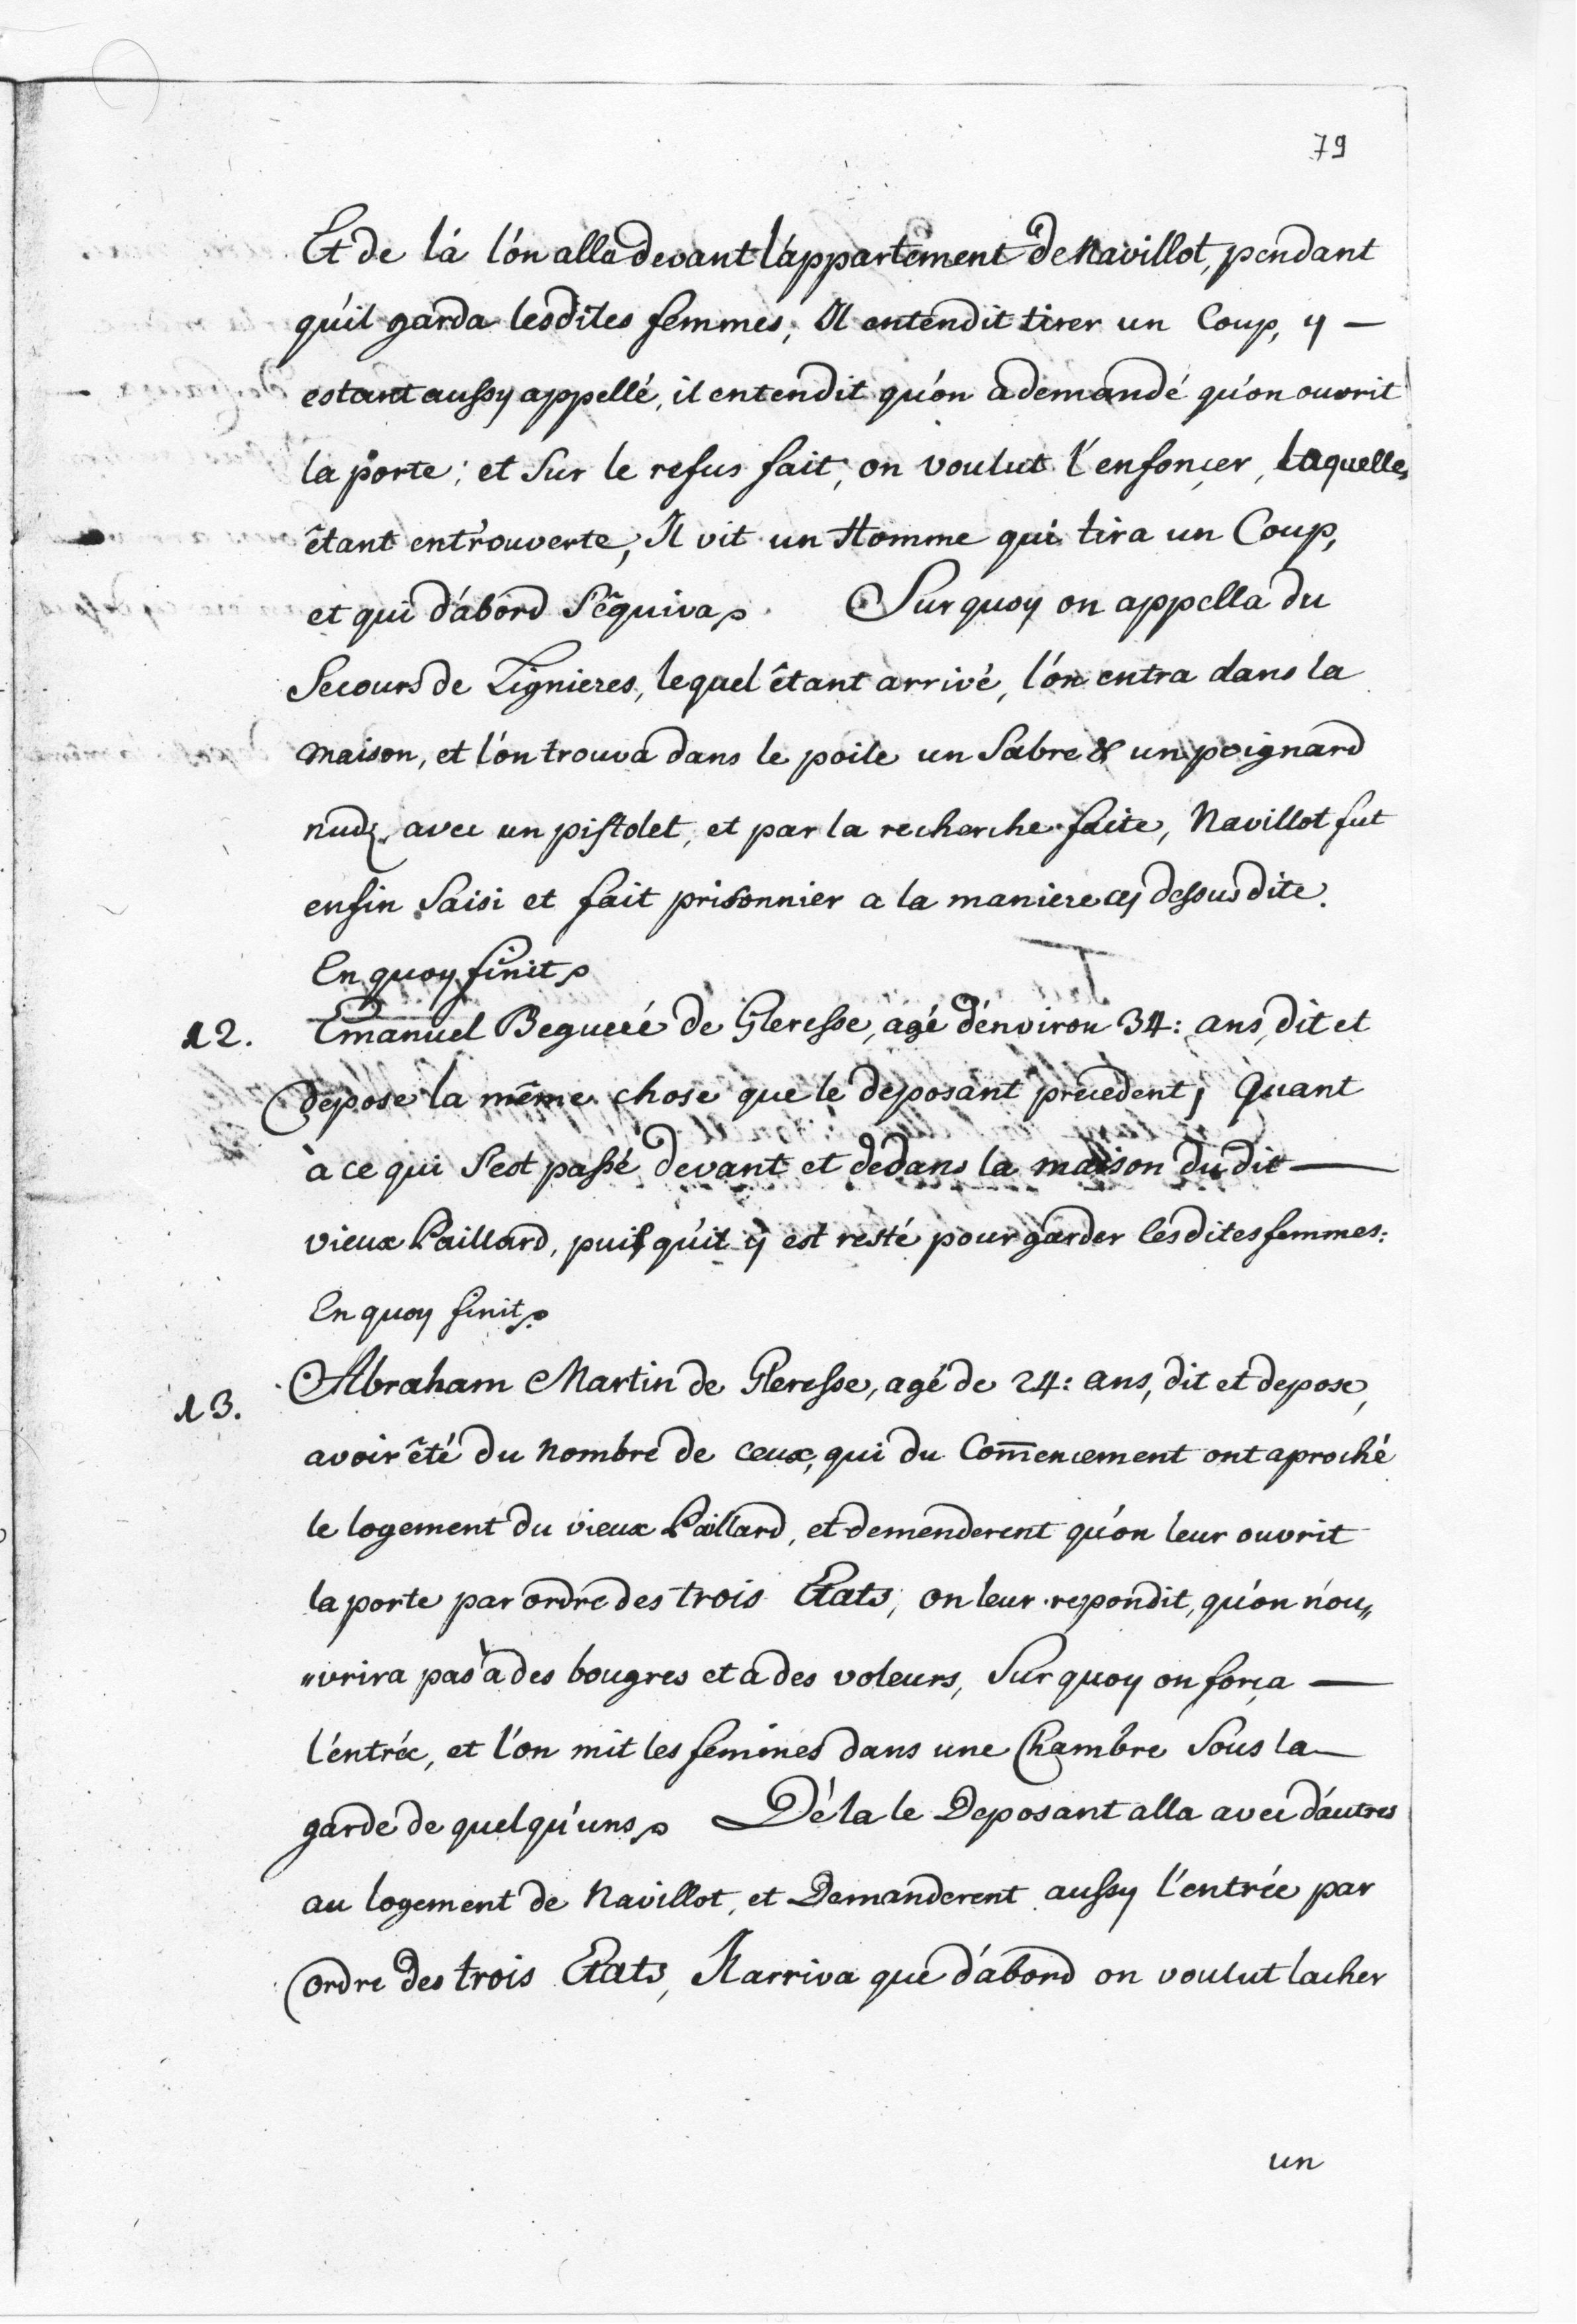 79
Et de lá l'ón alla devant l'áppartement de Navillot, pendant
qu'il garda lesdites femmes, Il entendit tirer un Coup, y —
estant aussy appellé, il entendit qu'ón a demandé qu'ón ouvrit
la porte; et sur le refus fait, on voulut l'enfonçer, laquelle
êtant entr'ouverte, Il vit un Homme qui tira un Coup,
et qui d'ábord s'êquiva. Surquoy on appella du
Secours de Lignieres, lequel êtant arrivé, l'ón entra dans la
maison, et l'ón trouva dans le poile un Sabre & un poignard
nudz avec un pistolet, et par la recherche faite, Navillot fut
enfin Saisi et fait prisonnier a la maniere cy dessus dite.
En quoy finit.
12. Emanuel Begueré de Gleresse, agé d'énviron 34: ans, dit et
depose la même chose que le deposant precedent, Quant
à ce qui s'est passé devant et dedans la maison du dit —
vieux Paillard, puis qu'il y est resté pour garder lesdites femmes:
En quoy finit.
13. Abraham Martin de Gleresse, agé de 24: ans, dit et depose,
avoir êté du nombre de ceux, qui du Com̄encement ont aproché
le logement du vieux Paillard, et demenderent qu'ón leur ouvrit
la porte par ordre des trois Etats, on leur repondit, qu'ón n'ou„
„vrira pas à des bougres et a des voleurs, Surquoy on força —
l'éntrée, et l'ón mit les femmes dans une Chambre sous la —
garde de quelqu'uns. Dé la le Deposant alla avec d'áutres
au logement de Navillot, et Demanderent aussy l'éntrée par
ordre des trois Etats, Il arriva que d'ábord on voulut lacher
un